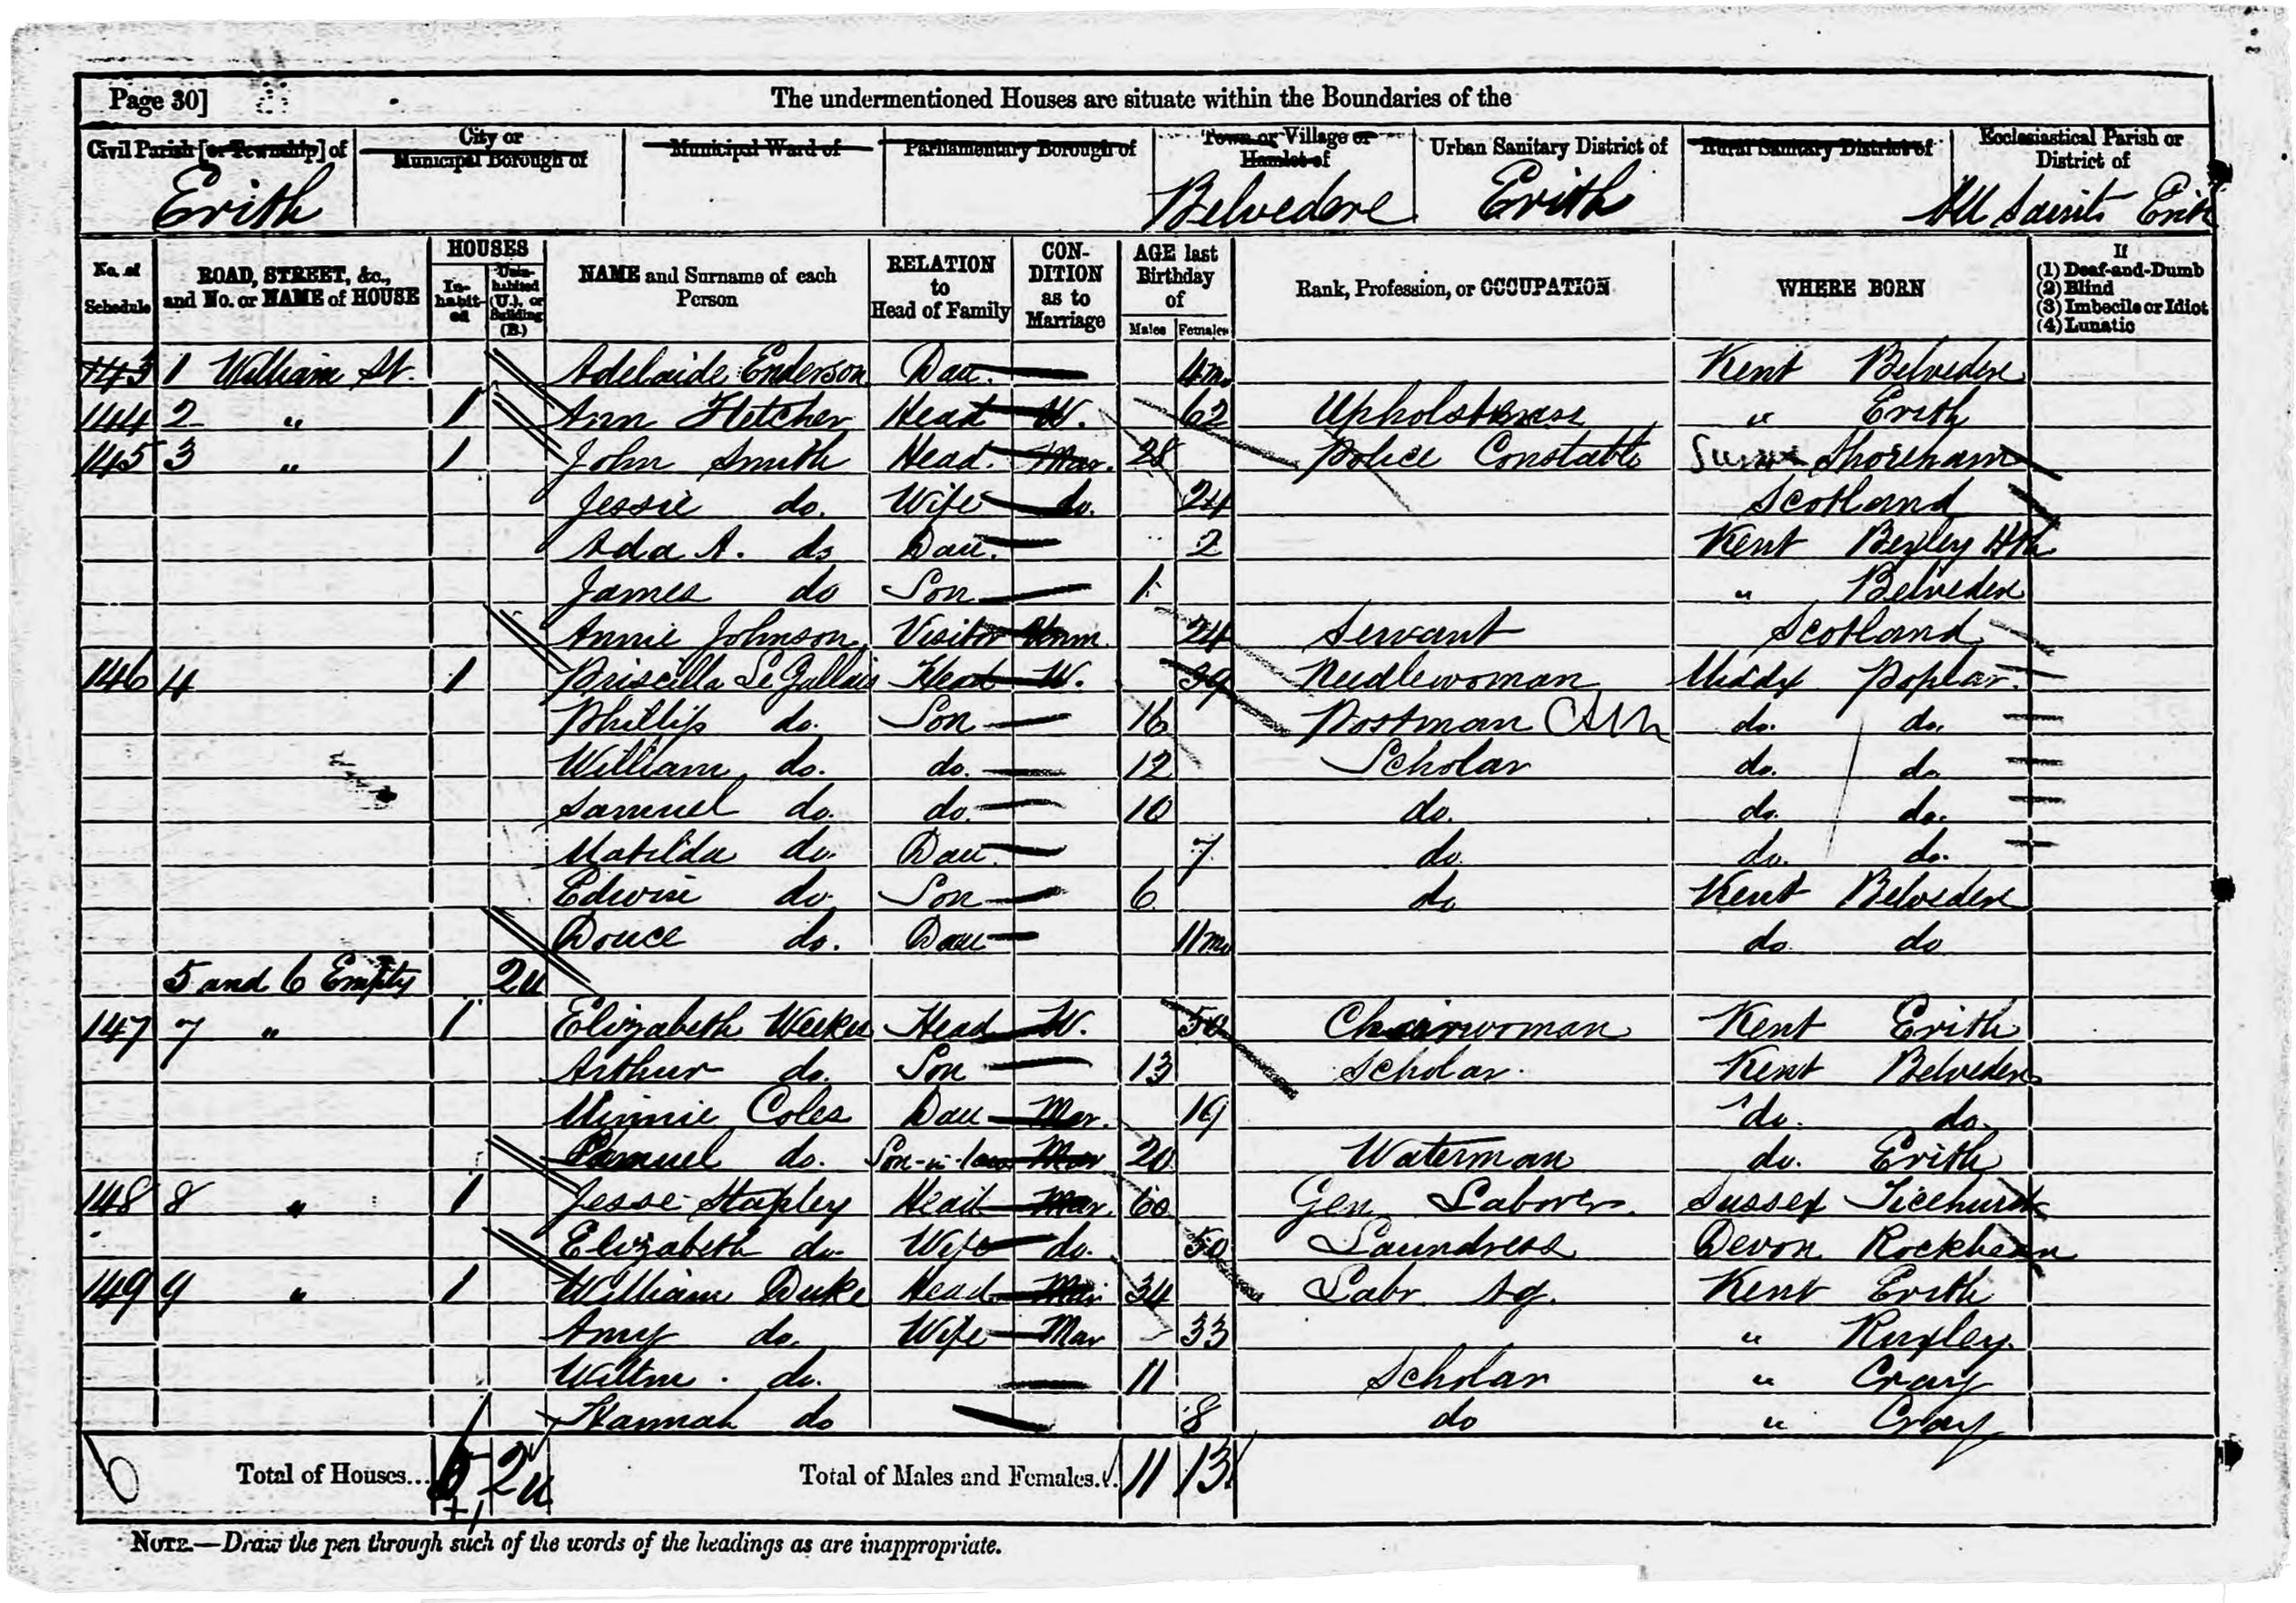 Page 30] The undermentioned Houses are situate within the Boundaries of the
Civil Parish [or Township] of City or Municipal Borough of Municipal Ward of Parliamentary Borough of Town or Village or Hamlet of Urban Sanitary District of Rural Sanitary District of Ecclesiastical Parish or District of
Erith Belvedere Erith All Saints Erith
No. of Schedule ROAD, STREET, &c., and No. or NAME of HOUSE HOUSES Inhabited Uninhabited (U.), or Building (B.) NAME and Surname of each Person RELATION to Head of Family CONDITION as to Marriage AGE last Birthday of Males Females Rank, Profession, or OCCUPATION WHERE BORN If (1) Deaf-and-Dumb (2) Blind (3) Imbecile or Idiot (4) Lunatic
143 1 William St. Adelaide Enderson Dau. 4 mo Kent Belvedere
144 2 " 1 Ann Fletcher Head W. 62 Upholsteress " Erith
145 3 " 1 John Smith Head. Mar. 28 Police Constable Shoreham
Jessie do. Wife do. 24 Scotland
Ada A. do Dau. 2 Kent Bexley Hth
James do Son 1 " Belvedere
Annie Johnson Visitor Unm. 24 Servant Scotland
146 4 1 Priscilla Le Gallais Head W. 39 Needlewoman Middx Poplar.
Phillip do. Son 16 Postman do. do.
William do. do. 12 Scholar do. do
Samuel do. do. 10 do. do. do.
Matilda do. Dau. 7 do. do. do.
Edwin do Son 6 do Kent Belvedere
Douce do. Dau 11 mo do. do
5 and 6 Empty 2u
147 7 " 1 Elizabeth Weekes Head W. 50 Chairwoman Kent Erith
Arthur do. Son 13 Scholar. Kent Belvedere
Minnie Coles Dau Mar. 19 do. do.
Samuel do. Son-in-law Mar 20 Waterman do. Erith
148 8 " 1 Jesse Stapley Head Mar. 60 Gen Laborer. Sussex Ticehurst
Elizabeth do. Wife do. 50 Laundress Devon Rockbeare
149 9 " 1 William Duke Head Mar 34 Labr. Ag. Kent Erith
Amy do. Wife Mar 33 " Ruxley.
Willm. do. 11 Scholar " Cray
Hannah do 8 do " Cray
6 Total of Houses... 6 2u Total of Males and Females.. 11 13
+1
NOTE.—Draw the pen through such of the words of the headings as are inappropriate.